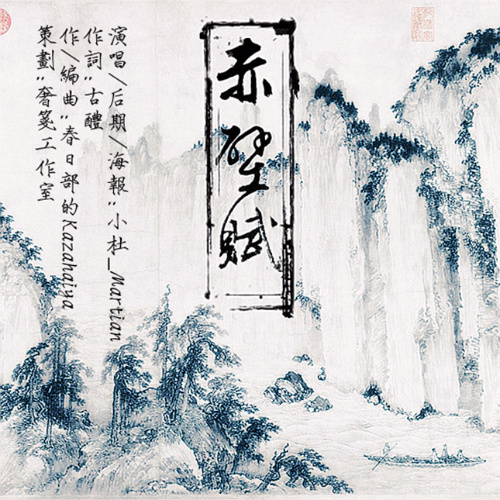 赤壁賦
演唱/后期/海報:小杜_Martian
作詞:古醴
作/編曲:春日部的Kazahaiya
策劃:奢箋工作室